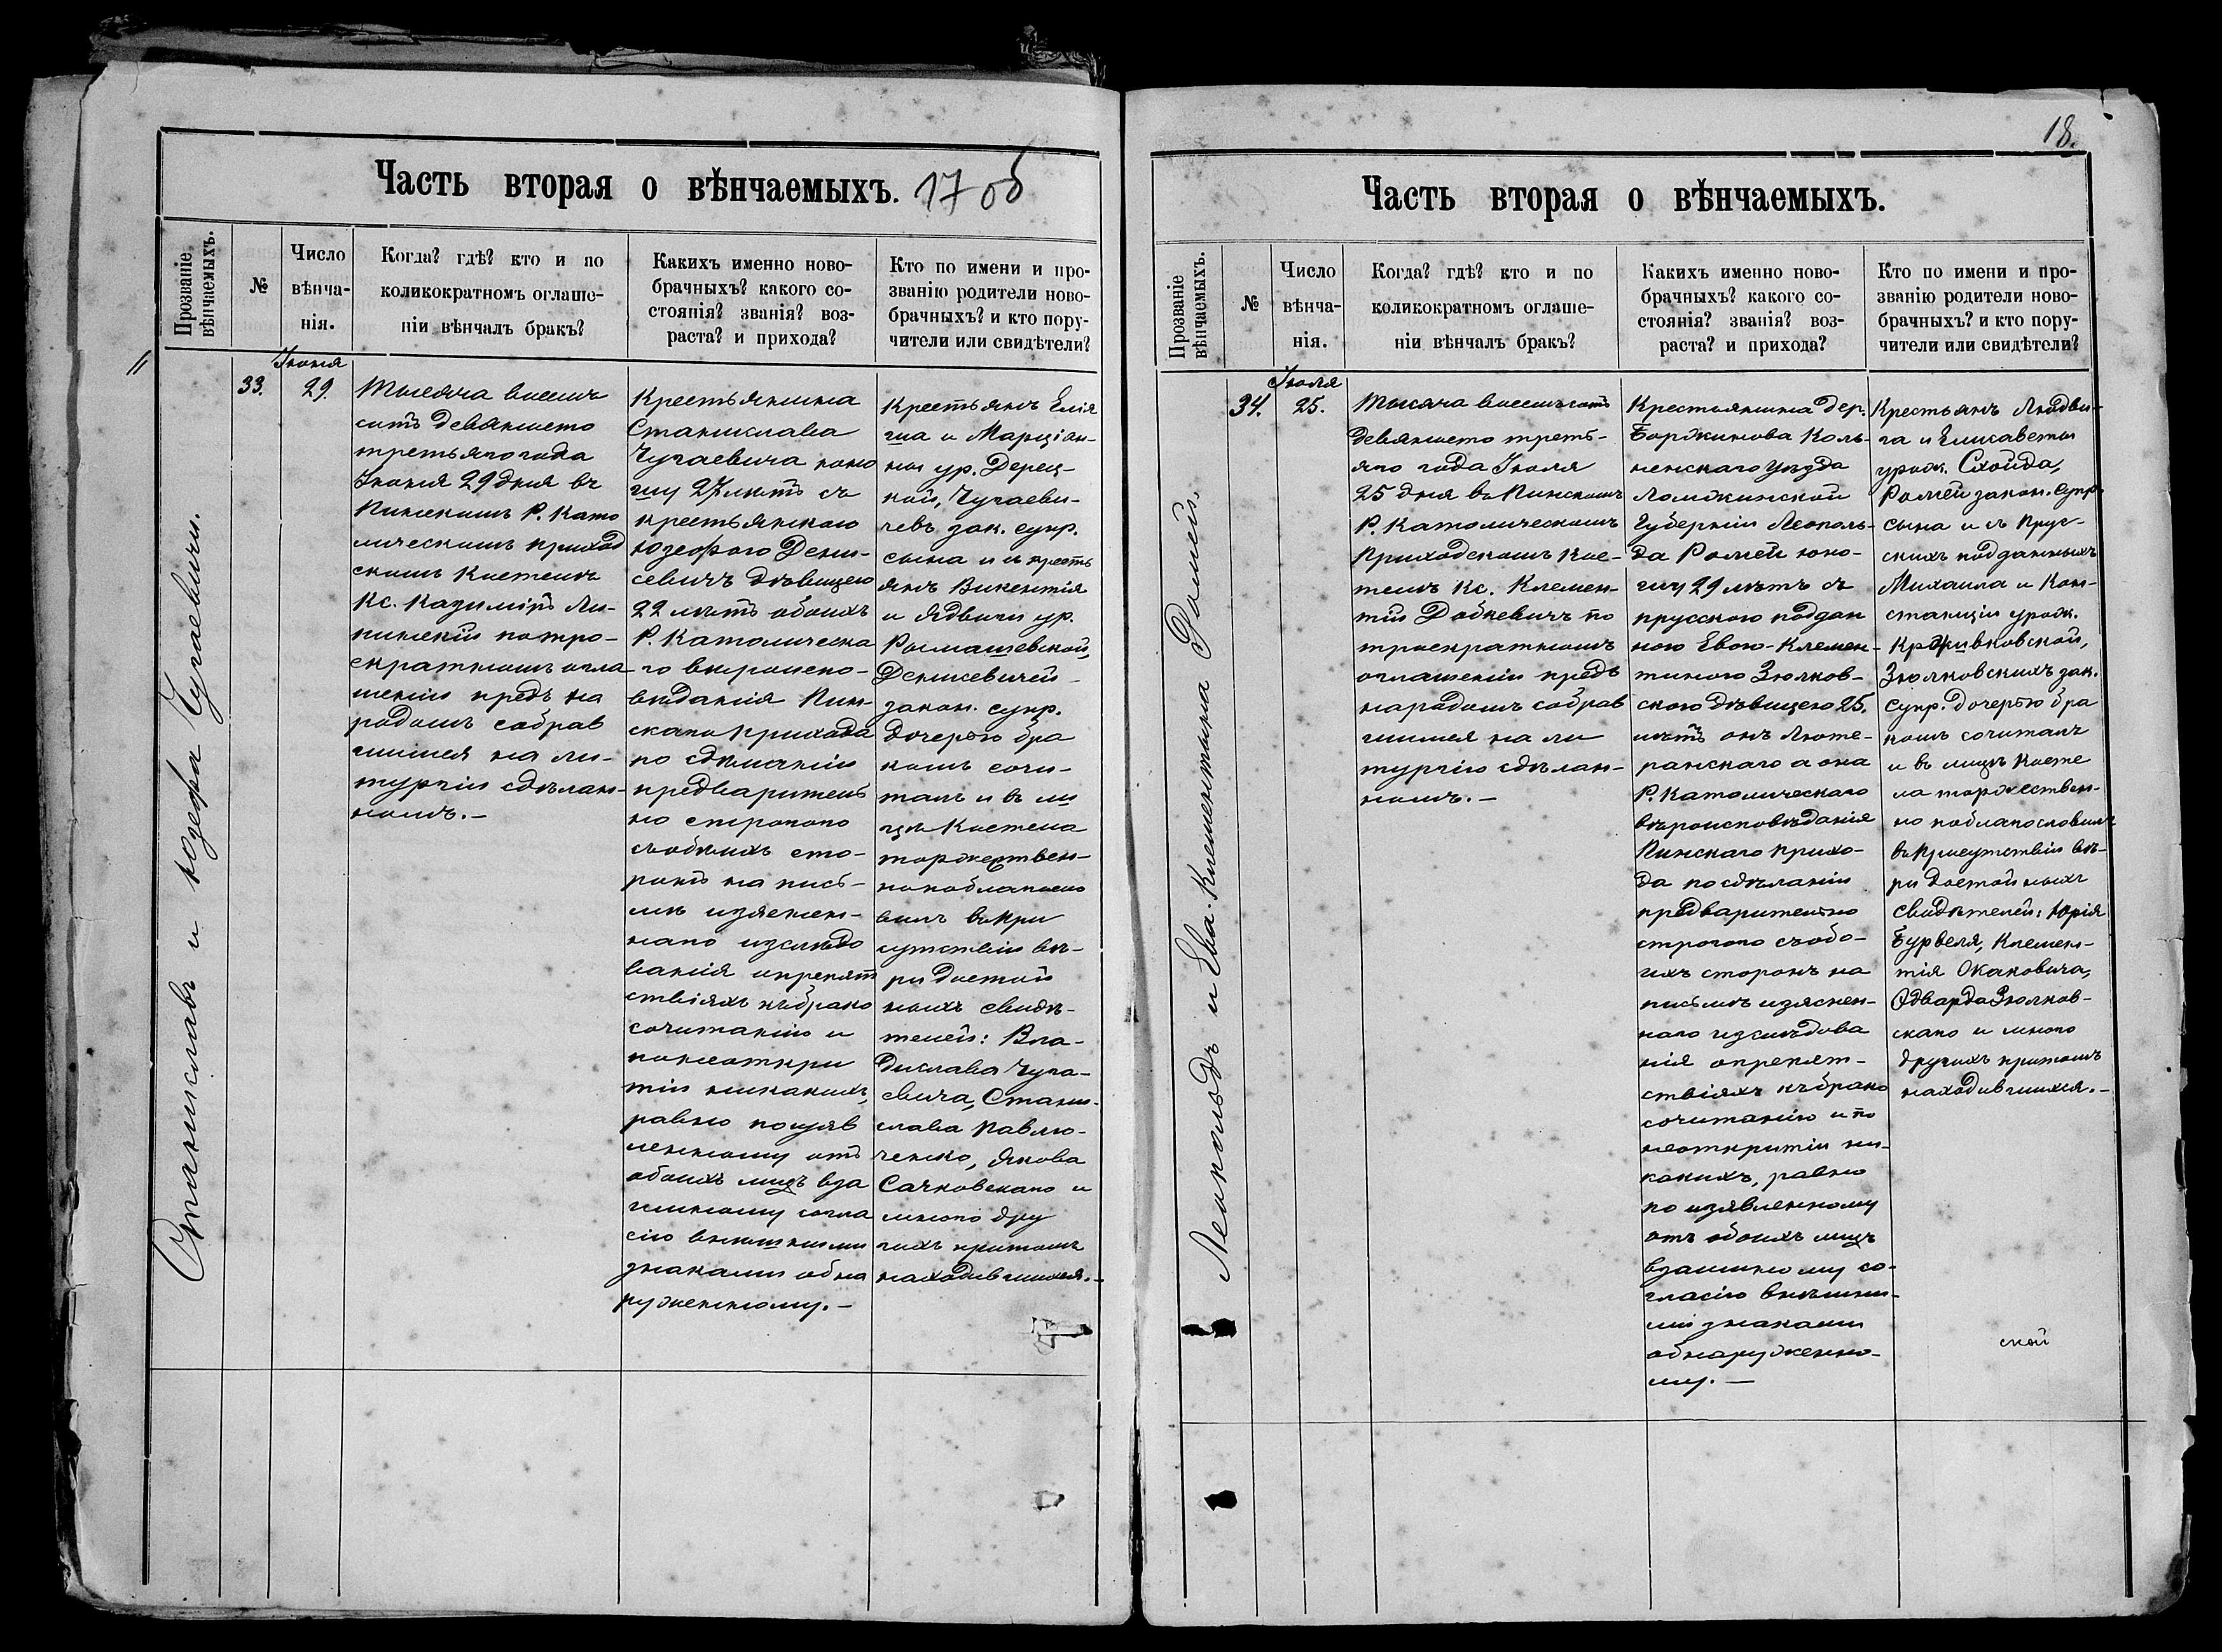 Часть вторая о вѣнчаемыхъ. 17 об
Прозваніе
вѣнчаемыхъ.
№
Число
вѣнча-
нія.
Когда? гдѣ? кто и по
коликократномъ оглаше-
ніи вѣнчалъ бракъ?
Какихъ именно ново-
брачныхъ? какого со-
стоянія? званія? воз-
раста? и прихода?
Кто по имени и про-
званію родители ново-
брачныхъ? и кто пору-
чители или свидѣтели?
Станиславъ и Юзефа Чугаевичи.
33.
Іюня
29.
Тысяча восемь
сотъ девяносто
третьяго года
Іюня 29 дня въ
Пинскомъ Р. Като
лическомъ приход
скомъ Костелѣ
Кс. Казиміръ Ли-
пинскій по трое-
кратномъ огла-
шеніи предъ на
родомъ собрав
шимся на ли-
тургіи сдѣлан-
номъ.-
Крестьянина
Станислава
Чугаевича юно
шу 27 лѣтъ съ
крестьянкою
Юзефою Дени-
севичъ дѣвицею
22 лѣтъ обоихъ
Р. Католическа
го вѣроиспо-
вѣданія Пин-
скаго прихода
по сдѣланіи
предваритель
но строгого
съ обѣихъ сто-
ронъ на пись-
мѣ изяснен-
наго изслѣдо
ванія о препят
ствіяхъ къ брако
сочитанію и
по неоткры
тіи никакихъ,
равно по изяв
ленному отъ
обоихъ лицъ вза
имному согла
сію внѣшними
знаками обна
руженному.-
Крестьянъ Елія
ша и Марціан-
ны ур. Дерец-
кой, Чугаеви-
чевъ зак. супр.
сына и съ кресть
янъ Викентія
и Ядвиги ур.
Ромашевской,
Денисевичей
закон. супр.
дочерью бра
комъ сочи-
талъ и въ ли
цѣ Костела
торжествен-
но поблагосло
вилъ въ при
сутствіи вѣ-
ри достой
ныхъ свидѣ-
телей: Вла-
дислава Чуга-
евича, Стани-
слава Павлю-
ченко, Якова
Сачковскаго и
много дру
гихъ притомъ
находившихся.-
18.
Часть вторая о вѣнчаемыхъ.
Прозваніе
вѣнчаемыхъ.
№
Число
вѣнча-
нія.
Когда? гдѣ? кто и по
коликократномъ оглаше-
ніи вѣнчалъ бракъ?
Какихъ именно ново-
брачныхъ? какого со-
стоянія? званія? воз-
раста? и прихода?
Кто по имени и про-
званію родители ново-
брачныхъ? и кто пору-
чители или свидѣтели?
Леопольдъ и Ева-Клементина Ромей.
34.
Іюля
25.
Тысяча восемьсотъ
девяносто треть-
яго года Іюля
25 дня въ Пинскомъ
Р. Католическомъ
Приходскомъ Кос-
телѣ Кс. Клемен-
тій Добкевичъ по
троекратномъ
оглашеніи предъ
народомъ собрав
шимся на ли
тургію сдѣлан-
номъ.-
Крестьянина дер.
Боржимова Коль-
ненскаго Уѣзда
Ломжинской
Губерніи Леополь-
да Ромей юно-
шу 29 лѣтъ съ
прусскою поддан
ною Евою-Клемен-
тиною Зюлков-
скою дѣвицею 25.
лѣтъ онъ Люте-
ранскаго а она
Р. Католическаго
вѣроисповѣданія
Пинскаго прихо-
да по сдѣланіи
предварительно
строгого съ обо-
ихъ сторонъ на
письмѣ изяснен-
наго изслѣдова
нія о препят-
ствіяхъ къ брако
сочитанію и по
неоткрытіи ни-
какихъ, равно
по изявленному
отъ обоихъ лицъ
взаимному со-
гласію внѣшни-
ми знаками
обнаруженно-
му.-
Крестьянъ Людви-
га и Елисаветы
урож. Схойда,
Ромей закон. супр.
сына и съ прус-
скихъ подданныхъ
Михаила и Кон-
станціи урож.
Зюлковскихъ зак.
супр. дочерью бра
комъ сочиталъ
и въ лицѣ Косте
ла торжествен-
но поблагословилъ
въ присутствіи вѣ-
ри достойныхъ
свидѣтелей: Юрія
Бурвеля, Клемен-
тія Окаковича,
Эдварда Зюлков-
скаго и много
другихъ притомъ
находившихся.-
ской